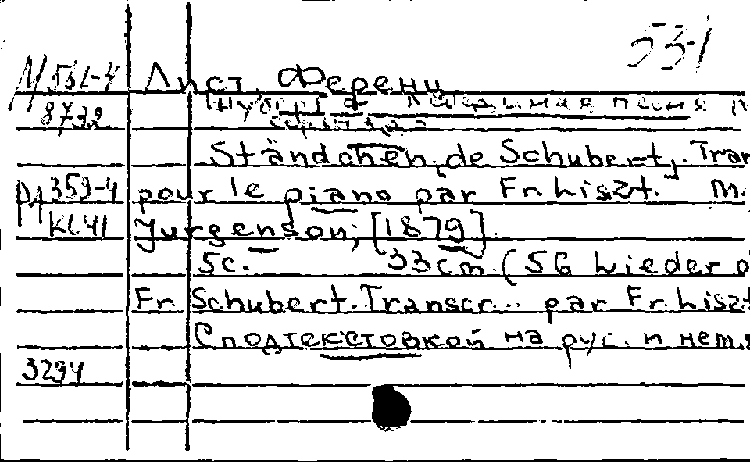 531
М 531-4 Лист, Ференц
8732 Шуберт Ф Лебединая песня
Ständchen, de Schubert, Tran
359-4 pour le piano par Fr. Liszt. M.
Jurgenson, [1879].
5c. 33cm (56 Lieder d
Fr Schubert. Transcr... par Fr. Liszt
С подтекстовкой на рус. и нем.я
3294